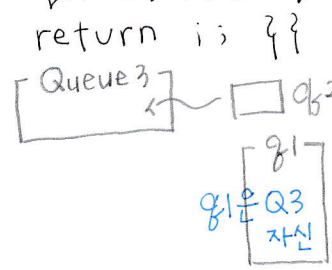 return i; }}
Queue3
q2
q1
q1은 Q3
자신